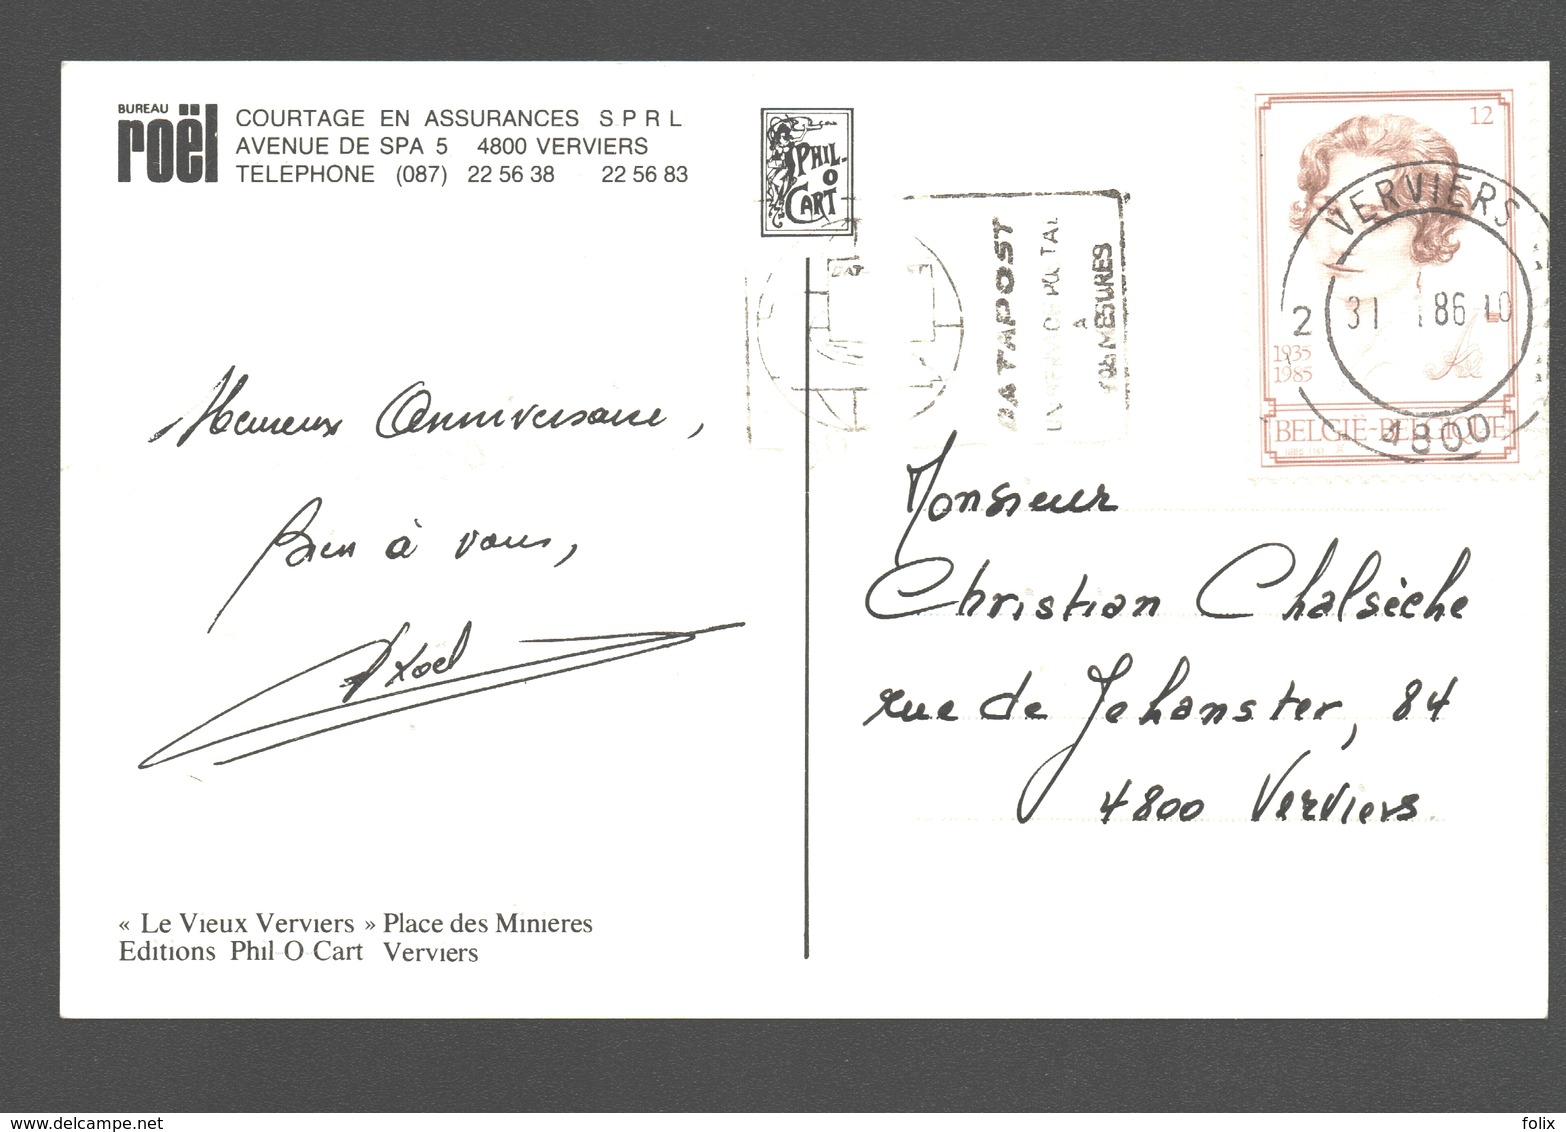 BUREAU
roël
COURTAGE EN ASSURANCES S P R L
AVENUE DE SPA 5 4800 VERVIERS
TELEPHONE (087) 22 56 38 22 56 83
PHIL-
O
CART
12
1935
1985
BELGIË-BELGIQUE
VERVIERS
2 31 1 86 10
4800
DATAPOST
A
VOS MESURES
Heureux Anniversaire,
bien à vous,
Monsieur
Christian Chalsèche
rue de Jehanster, 84
4800 Verviers
« Le Vieux Verviers » Place des Minieres
Editions Phil O Cart Verviers
delcampe.net
folix